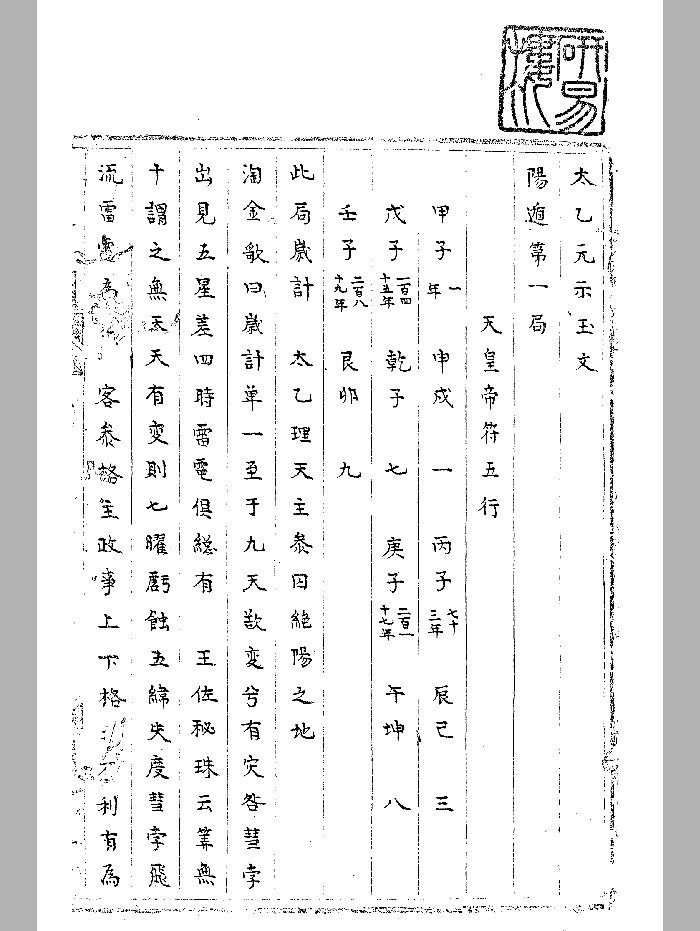 研易樓
太乙元示玉文
陽遁第一局
天皇帝符五行
甲子一年 申戌 一 丙子七十三年 辰巳 三
戊子一百四十五年 乾子 七 庚子二百一十七年 午坤 八
壬子二百八十九年 艮卯 九
此局歲計 太乙理天主叅囚絶陽之地
淘金歌曰歲計单一至于九天欲变兮有灾咎彗孛
出見五星差四時雷電俱總有 王佐秘珠云筭無
十謂之無天天有变則七曜虧蝕五緯失度彗孛飛
流雷 客叅格主政事上下格 利有為